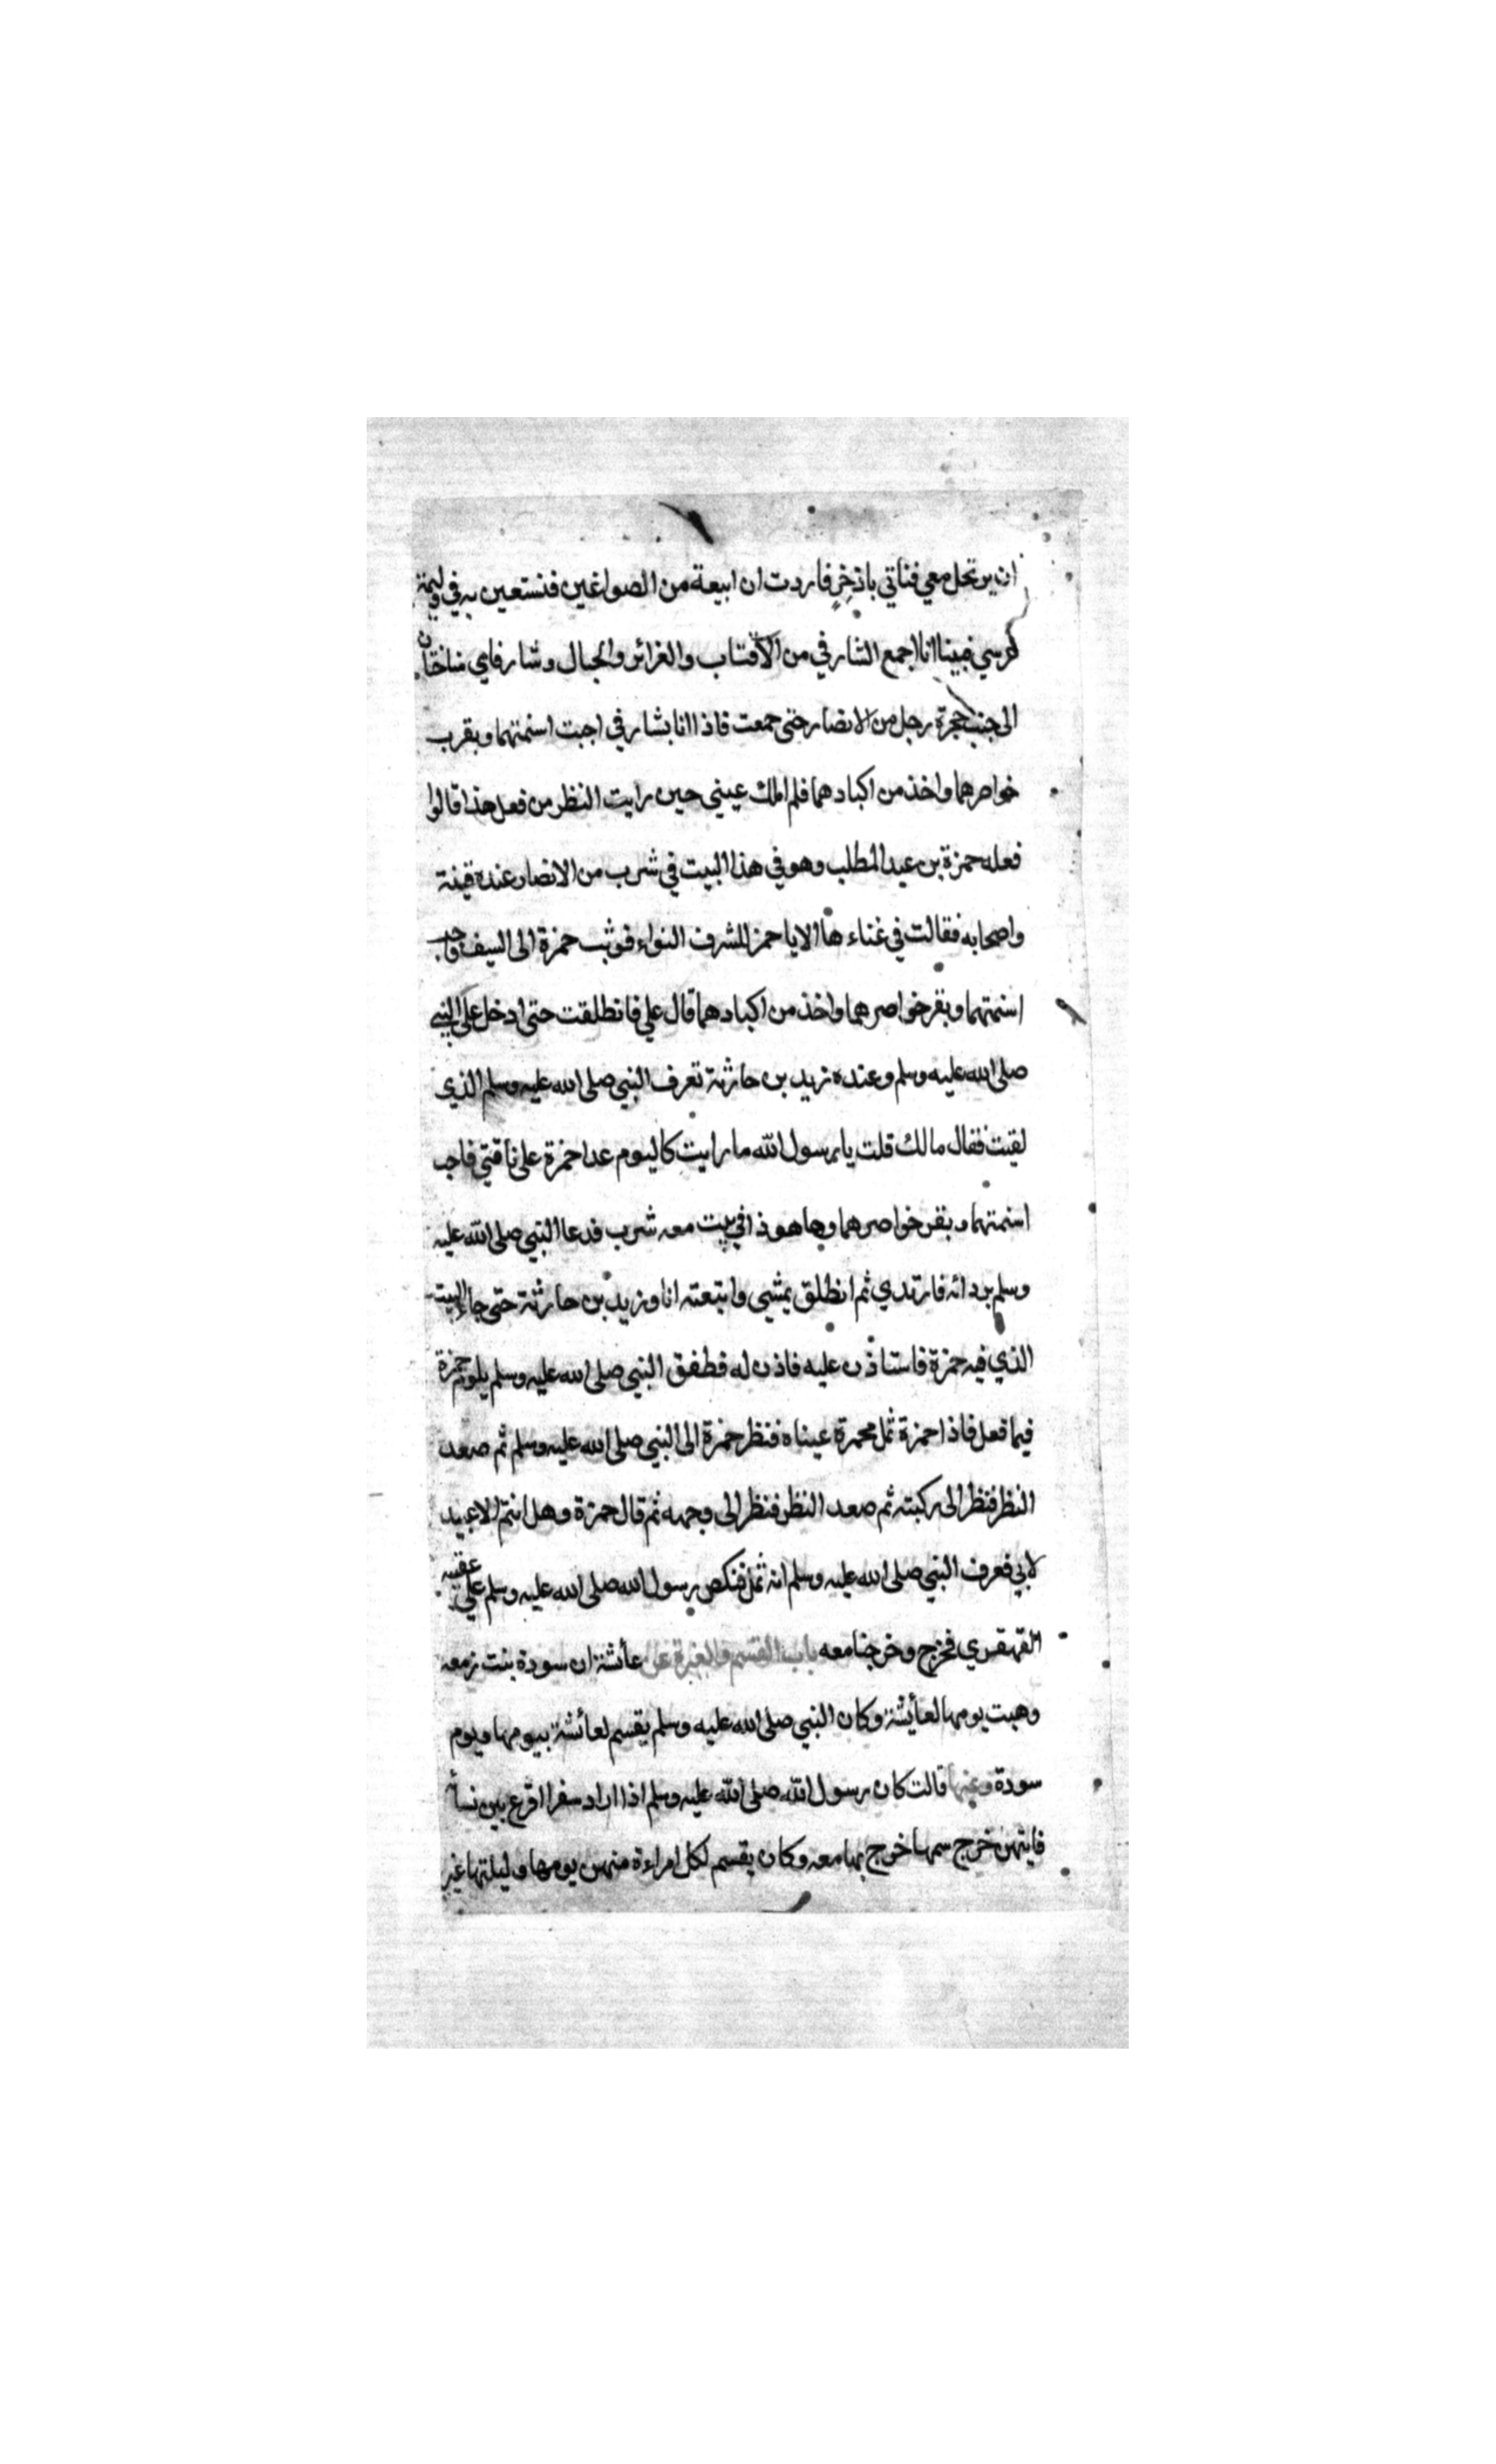 ان يرتحل معي فناتي باذخر فاردت ان ابيعة من الصواغين فنستعين به في وليمة
عرسي فبينا انا اجمع الشارفي من الاقتاب والغرائر والحبال وشارفاي مناختان
الى جنب حجرة رجل من الانصار حتى جمعت فاذا انا بشارفي اجبت اسنمتهما وبقرب
خواصرهما واخذ من اكبادهما فلم املك عيني حين رايت النظر من فعل هذا قالوا
فعله حمزة بن عبد المطلب وهو في هذا البيت في شرب من الانصار عنده قينة
واصحابه فقالت في غناءها الا يا حمز للشرف النواء فوثب حمزة الى السيف فاجب
اسنمتهما وبقر خواصرهما واخذ من اكبادهما قال علي فانطلقت حتى ادخل على النبي
صلى الله عليه وسلم وعنده زيد بن حارثة تعرف النبي صلى الله عليه وسلم الذي
لقيت فقال مالك قلت يا رسول الله ما رايت كاليوم عدا حمزة على ناقتي فاجب
اسنمتهما وبقر خواصرهما وها هو ذا في بيت معه شرب فدعا النبي صلى الله عليه
وسلم بردائه فارتدي ثم انطلق يمشي واتبعته انا وزيد بن حارثة حتى جاء البيت
الذي فيه حمزة فاستاذن عليه فاذن له فطفق النبي صلى الله عليه وسلم يلوم حمزة
فيما فعل فاذا حمزة ثمل محمرة عيناه فنظر حمزة الى النبي صلى الله عليه وسلم ثم صعد
النظر فنظر الى ركبته ثم صعد النظر فنظر الى وجهه ثم قال حمزة وهل انتم الا عبيد
لابي فعرف النبي صلى الله عليه وسلم انه ثمل فنكص رسول الله صلى الله عليه وسلم علي عقبيه
القهقري فخرج وخرجنا معه باب القسم والغيرة عن عائشة ان سودة بنت زمعه
وهبت يومها لعائشة وكان النبي صلى الله عليه وسلم يقسم لعائشة بيومها ويوم
سودة وعنها قالت كان رسول الله صلى الله عليه وسلم اذا اراد سفرا اقرع بين نسأ
فايتهن خرج سهمها خرج بها معه وكان يقسم لكل امراءة منهن يومها وليلتها غير